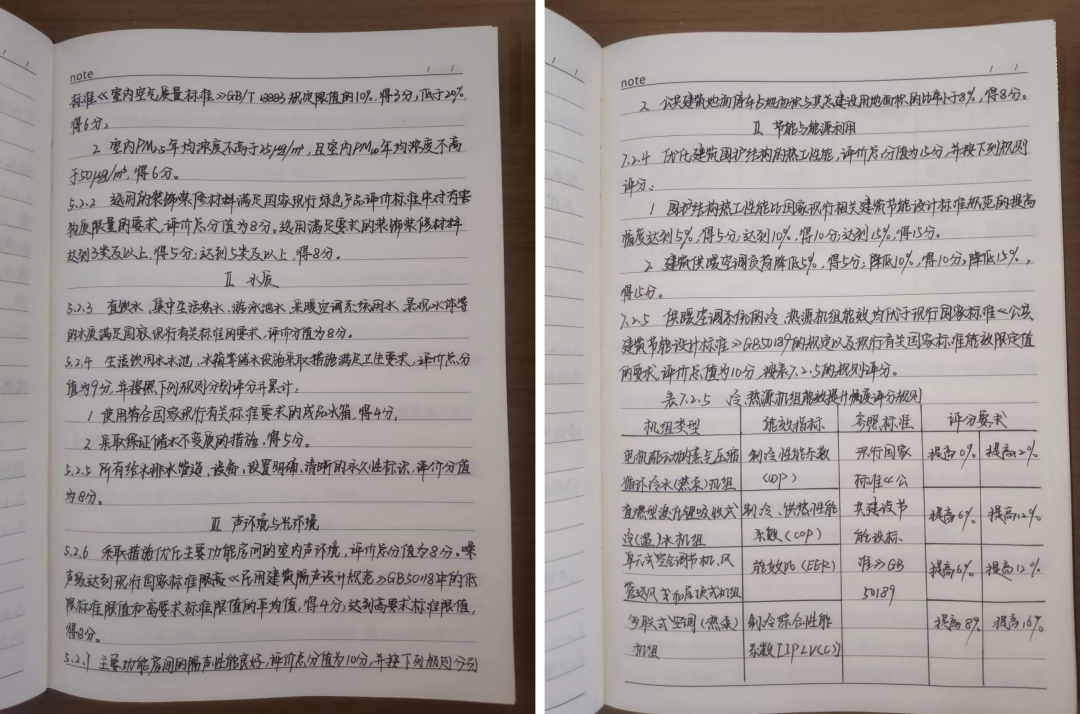 note
标准《室内空气质量标准》GB/T 18883规定限值的10%,得3分;低于20%,
得6分;
2 室内PM2.5年均浓度不高于25μg/m³,且室内PM10年均浓度不高
于50μg/m³,得6分。
5.2.2 选用的装饰装修材料满足国家现行绿色产品评价标准中对有害
物质限量的要求,评价总分值为8分。选用满足要求的装饰装修材料
达到3类及以上,得5分;达到5类及以上,得8分。
Ⅱ 水质
5.2.3 直饮水、集中生活热水、游泳池水、采暖空调系统用水、景观水体等
的水质满足国家现行有关标准的要求,评价分值为8分。
5.2.4 生活饮用水水池、水箱等储水设施采取措施满足卫生要求,评价总分
值为9分,并按照下列规则分别评分并累计:
1 使用符合国家现行有关标准要求的成品水箱,得4分;
2 采取保证储水不变质的措施,得5分。
5.2.5 所有给水排水管道、设备、设置明确、清晰的永久性标识,评价分值
为8分。
Ⅲ 声环境与光环境
5.2.6 采取措施优化主要功能房间的室内声环境,评价总分值为8分。噪
声级达到现行国家标准《民用建筑隔声设计规范》GB50118中的低
限标准限值和高要求标准限值的平均值,得4分;达到高要求标准限值,
得8分。
5.2.7 主要功能房间的隔声性能良好,评价总分值为10分,并按下列规则分别
note
2 公共建筑地面停车占地面积与其总建设用地面积的比率小于8%,得8分。
Ⅱ 节能与能源利用
7.2.4 优化建筑围护结构的热工性能,评价总分值为15分,并按下列规则
评分:
1 围护结构热工性能比国家现行相关建筑节能设计标准规范的提高
幅度达到5%,得5分;达到10%,得10分;达到15%,得15分。
2 建筑供暖空调负荷降低5%,得5分;降低10%,得10分;降低15%,
得15分。
7.2.5 供暖空调系统的冷、热源机组能效均优于现行国家标准《公共
建筑节能设计标准》GB50189的规定以及现行有关国家标准能效限定值
的要求,评价总值为10分,按表7.2.5的规则评分。
表7.2.5 冷、热源机组能效提升幅度评分规则
机组类型 能效指标 参照标准 评分要求
电机驱动的蒸气压缩 制冷性能系数 现行国家 提高6% 提高12%
循环冷水(热泵)机组 (COP) 标准《公
直燃型溴化锂吸收式 制冷、供热性能 共建设节 提高6% 提高12%
冷(温)水机组 系数(COP) 能设标
单元式空气调节机、风 能效比(EER) 准》GB 提高6% 提高12%
管送风式和屋顶式机组 50189
多联式空调(热泵) 制冷综合性能 提高8% 提高16%
机组 系数[IPLV(C)]